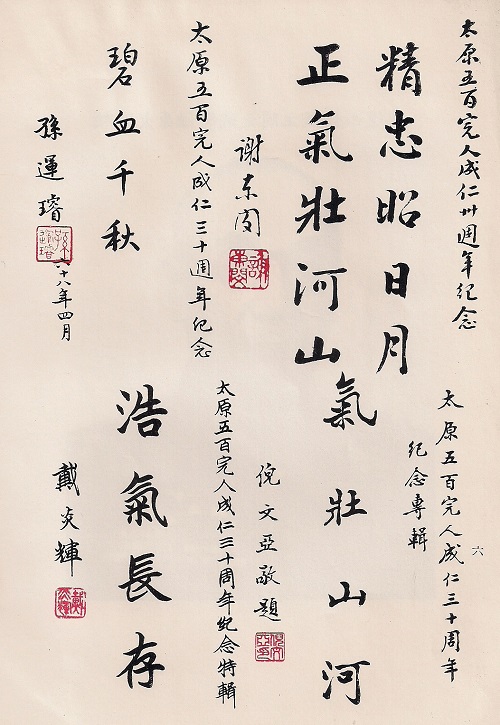 太原五百完人成仁卅週年紀念
精忠昭日月
正氣壯河山
謝東閔
太原五百完人成仁三十週年紀念
碧血千秋
孫運璿
六十八年四月
太原五百完人成仁三十周年
紀念專輯
氣壯山河
倪文亞敬題
太原五百完人成仁三十周年紀念特輯
浩氣長存
戴炎輝
六